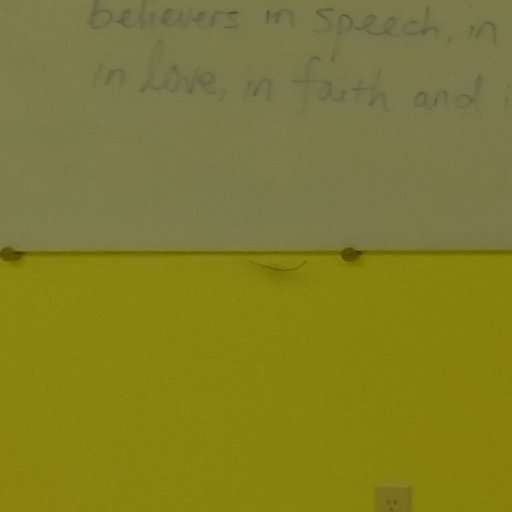 believers in speech, in
in love, in faith and i